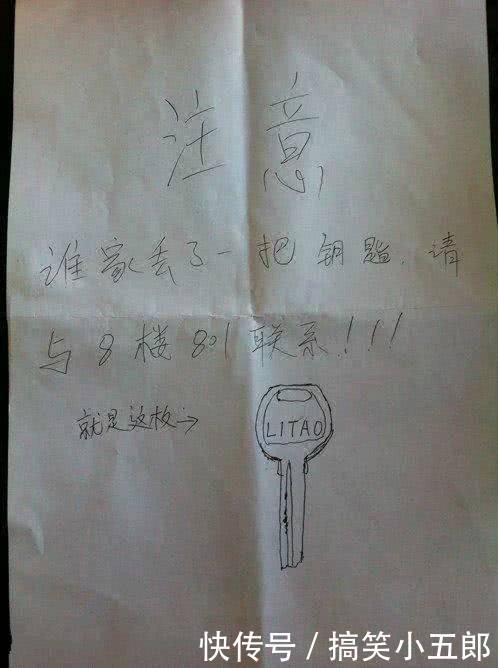 注意
谁家丢了一把钥匙，请
与8楼801联系！！！
就是这枚→
LITAO
快传号 / 搞笑小五郎